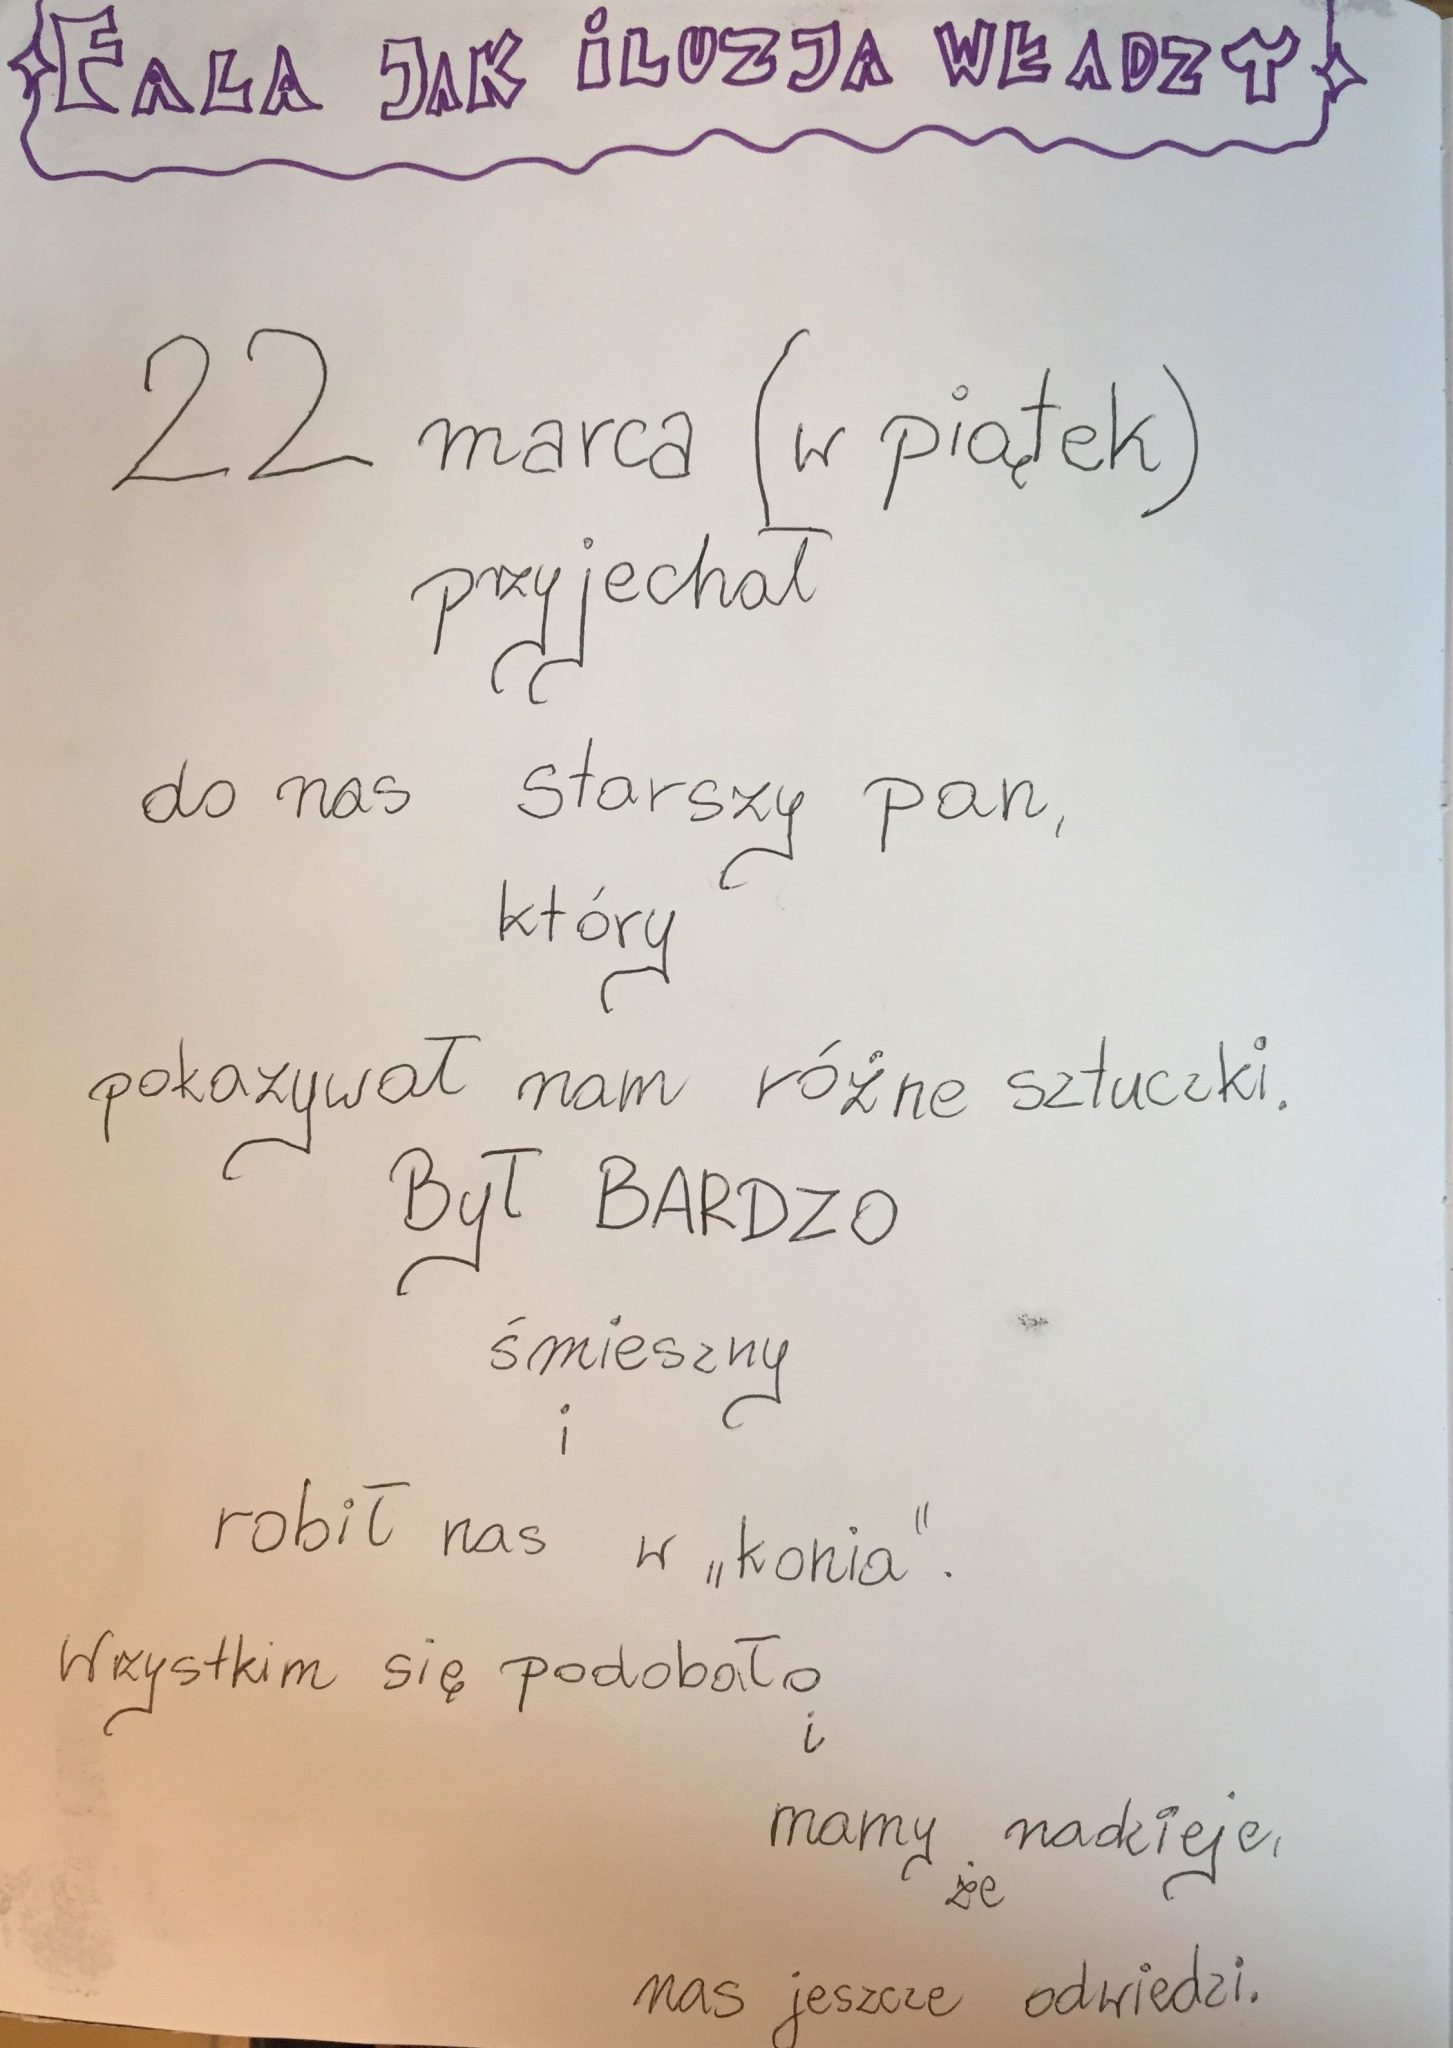 FALA JAK iLUZJA WŁADZY
22 marca (w piątek)
przyjechał
do nas starszy pan,
który
pokazywał nam różne sztuczki.
Był BARDZO
śmieszny
i
robił nas w „konia".
Wrzystkim się podobało
i
mamy nadzieje,
że
nas jeszcze odwiedzi.